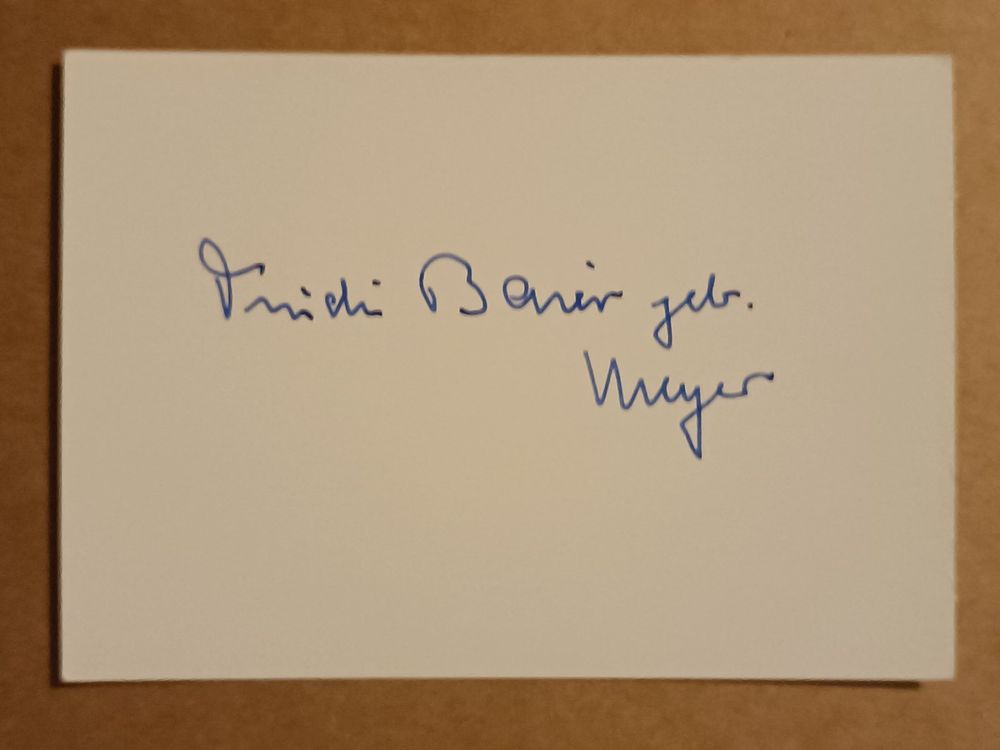 Trudi Baier geb.
Meyer